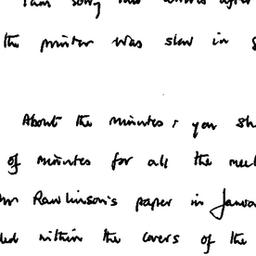 I am sorry this
the printer was slow in
About the minutes, you sh
of minutes for all the mee
Mr Rawlinson's paper in Janua
ded within the covers of the